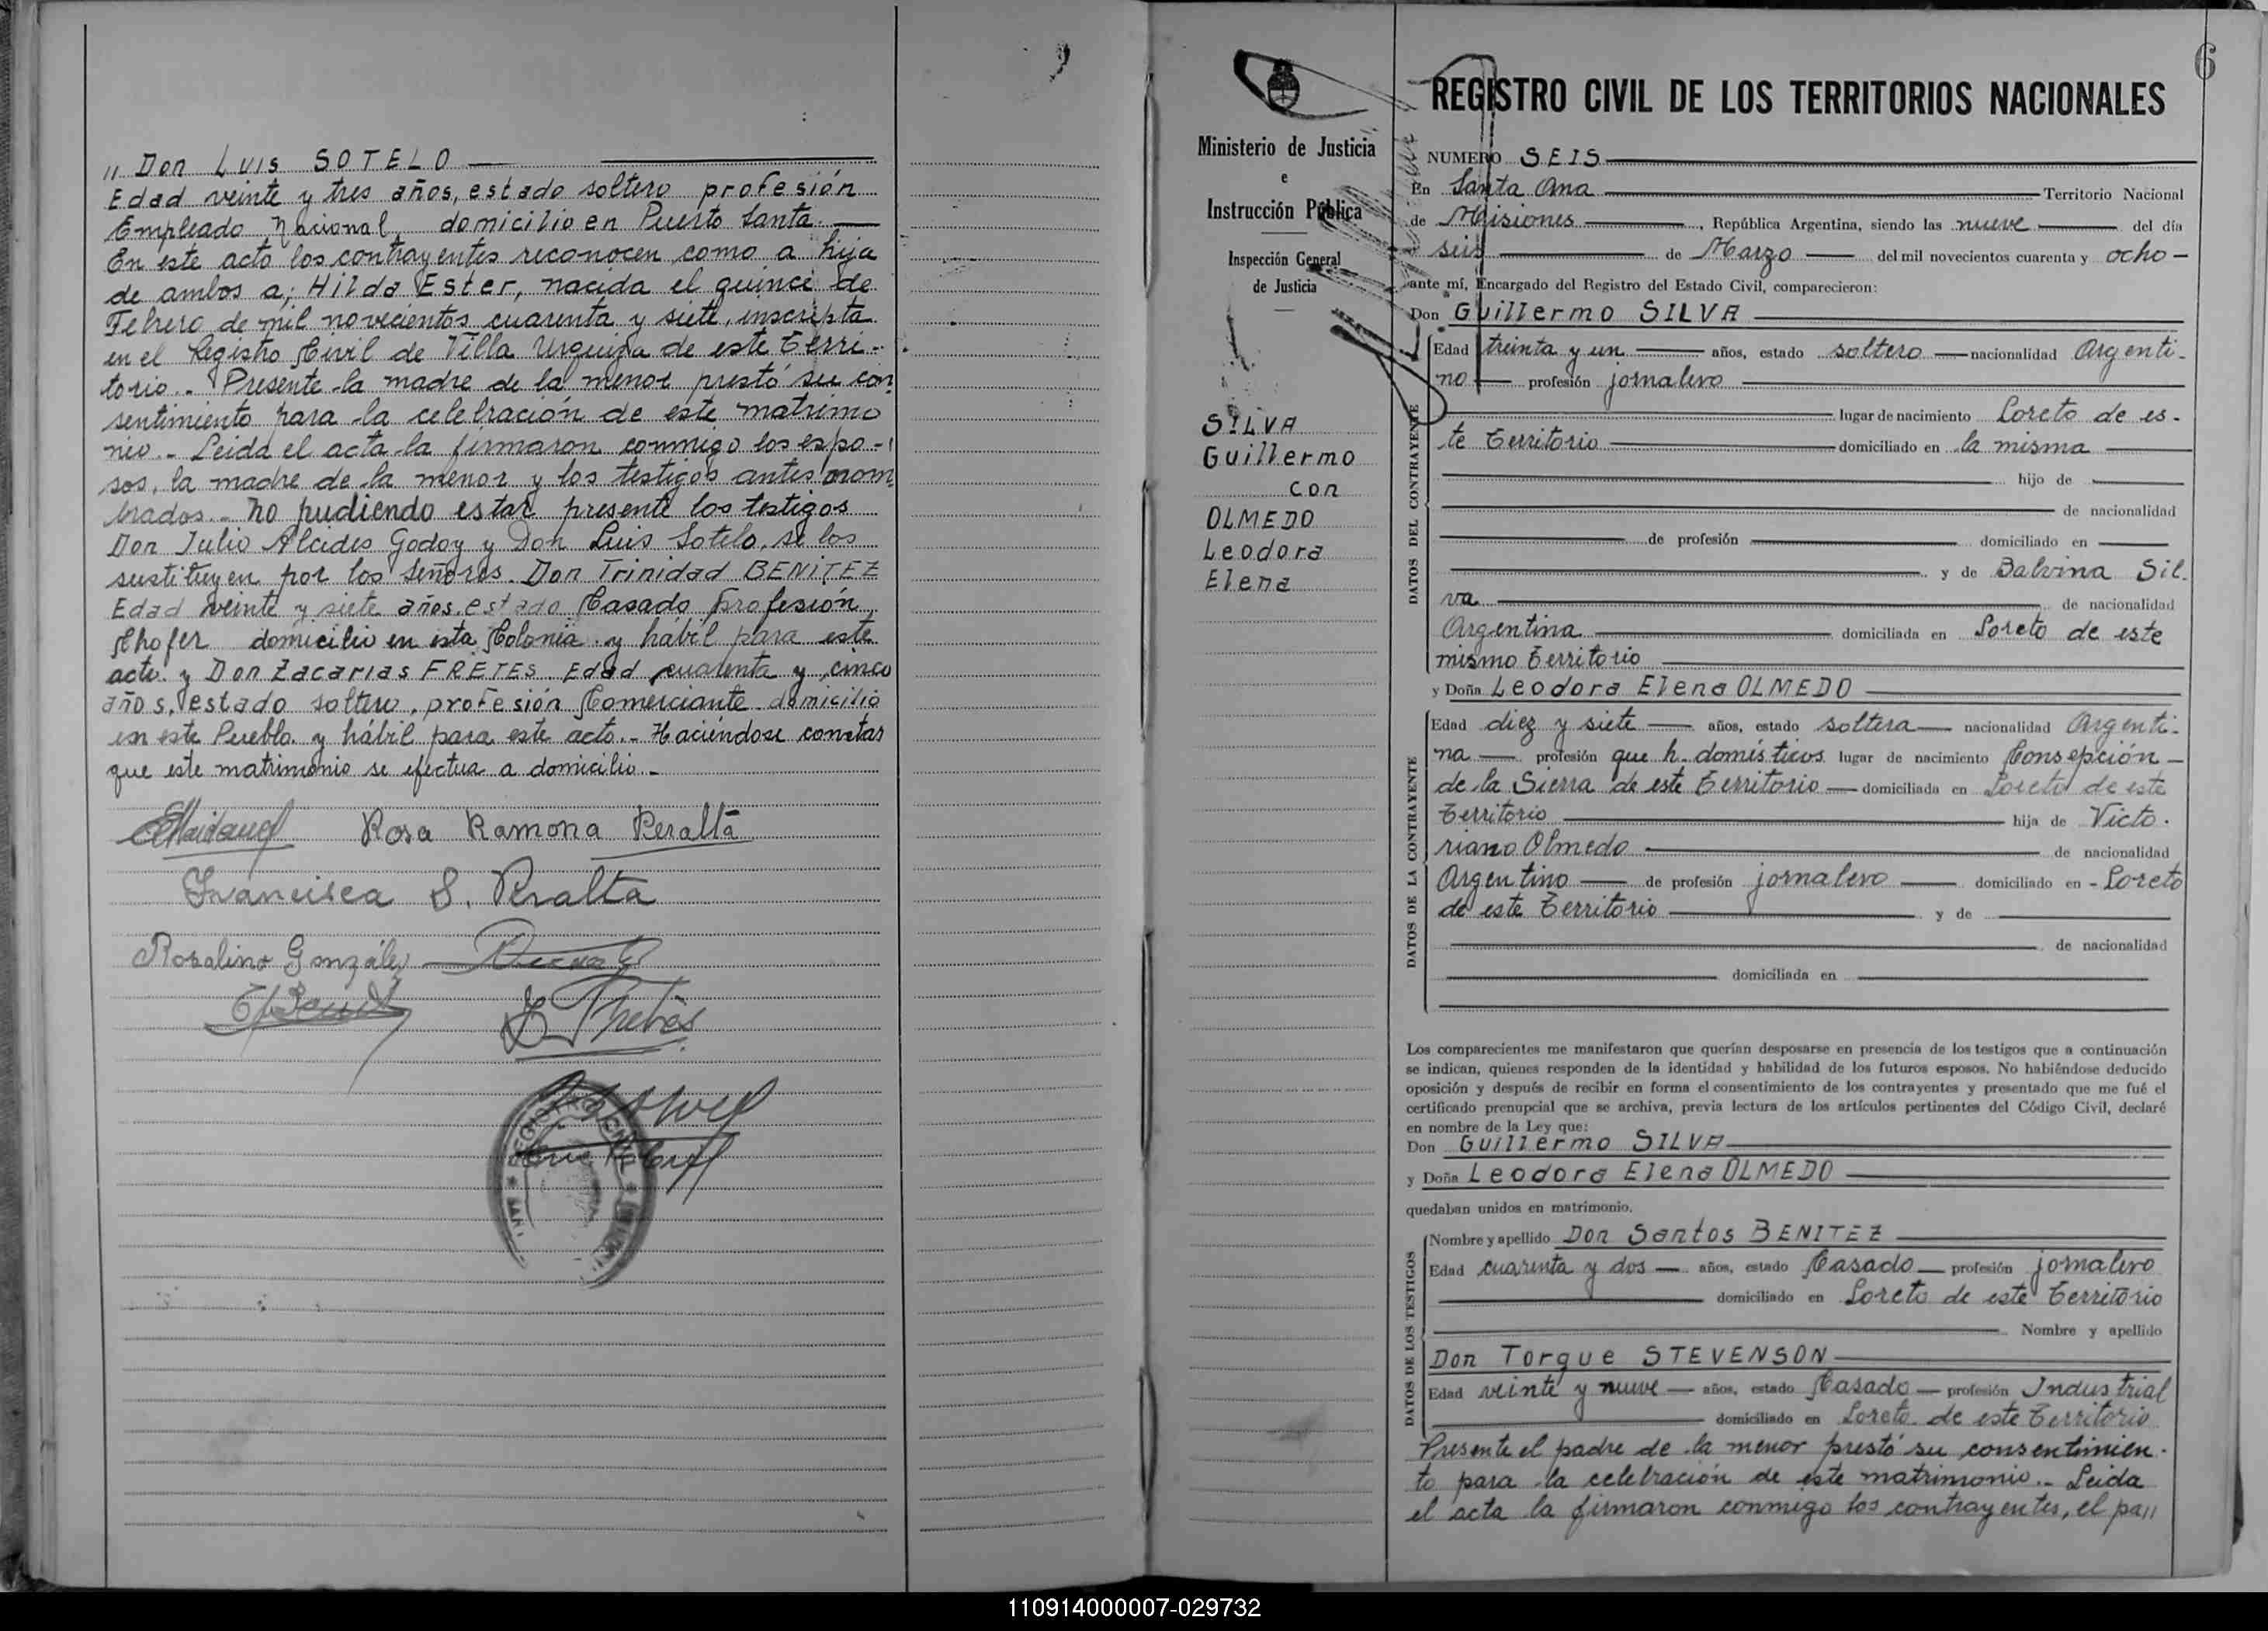 " Don Luis SOTELO
Edad veinte y tres años, estado soltero profesión
Empleado Nacional domicilio en Puerto Santa.
En este acto los contrayentes reconocen como a hija
de ambos a; Hilda Ester, nacida el quince de
Febrero de mil novecientos cuarenta y siete, inscripta
en el Registro Civil de Villa Urquiza de este Terri-
torio.- Presente la madre de la menor prestó su con
sentimiento para la celebración de este matrimo
nio.- Leida el acta la firmaron conmigo los espo-
sos, la madre de la menor y los testigos antes nom
brados.- No pudiendo estar presente los testigos
Don Julio Alcides Godoy y Don Luis Sotelo, se los
sustituyen por los Señores. Don Trinidad BENITEZ
Edad veinte y siete años, estado Casado profesión
Chofer domicilio en esta Colonia y habil para este
acto. y Don Zacarias FRETES Edad cuarenta y cinco
años, estado soltero, profesión Comerciante domicilio
en este Pueblo y hábil para este acto.- Haciéndose constar
que este matrimonio se efectua a domicilio.-
Rosa Ramona Peralta
Francisca S. Peralta
Rosalino González
6
Ministerio de Justicia
e
Instrucción Pública
Inspección General
de Justicia
SILVA
Guillermo
con
OLMEDO
Leodora
Elena
REGISTRO CIVIL DE LOS TERRITORIOS NACIONALES
NUMERO SEIS
En Santa Ana Territorio Nacional
de Misiones, República Argentina, siendo las nueve del día
seis de Marzo del mil novecientos cuarenta y ocho -
ante mí, Encargado del Registro del Estado Civil, comparecieron:
Don Guillermo SILVA
DATOS DEL CONTRAYENTE
Edad treinta y un años, estado soltero nacionalidad Argenti-
no profesión jornalero
lugar de nacimiento Loreto de es-
te Territorio domiciliado en la misma
hijo de
de nacionalidad
de profesión domiciliado en
y de Balvina Sil.
va de nacionalidad
Argentina domiciliada en Loreto de este
mismo Territorio
y Doña Leodora Elena OLMEDO
DATOS DE LA CONTRAYENTE
Edad diez y siete años, estado soltera nacionalidad Argenti-
na profesión que h. domésticos lugar de nacimiento Consepción
de la Sierra de este Territorio domiciliada en Loreto de este
Territorio hija de Victo.
riano Olmedo de nacionalidad
Argentino de profesión jornalero domiciliado en - Loreto
de este Territorio y de
de nacionalidad
domiciliada en
Los comparecientes me manifestaron que querían desposarse en presencia de los testigos que a continuación
se indican, quienes responden de la identidad y habilidad de los futuros esposos. No habiéndose deducido
oposición y después de recibir en forma el consentimiento de los contrayentes y presentado que me fué el
certificado prenupcial que se archiva, previa lectura de los artículos pertinentes del Código Civil, declaré
en nombre de la Ley que:
Don Guillermo SILVA
y Doña Leodora Elena OLMEDO
quedaban unidos en matrimonio.
DATOS DE LOS TESTIGOS
Nombre y apellido Don Santos BENITEZ
Edad cuarenta y dos años, estado Casado profesión jornalero
domiciliado en Loreto de este Territorio
Nombre y apellido
Don Torque STEVENSON
Edad veinte y nueve años, estado Casado profesión Industrial
domiciliado en Loreto de este Territorio
Presente el padre de la menor prestó su consentimien.
to para la celebración de este matrimonio.- Leida
el acta la firmaron conmigo los contrayentes, el pa"
110914000007-029732